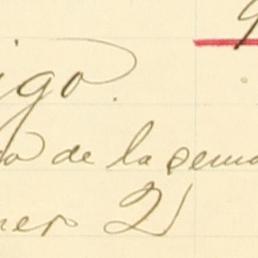 igo.
o de la sema
ner 21